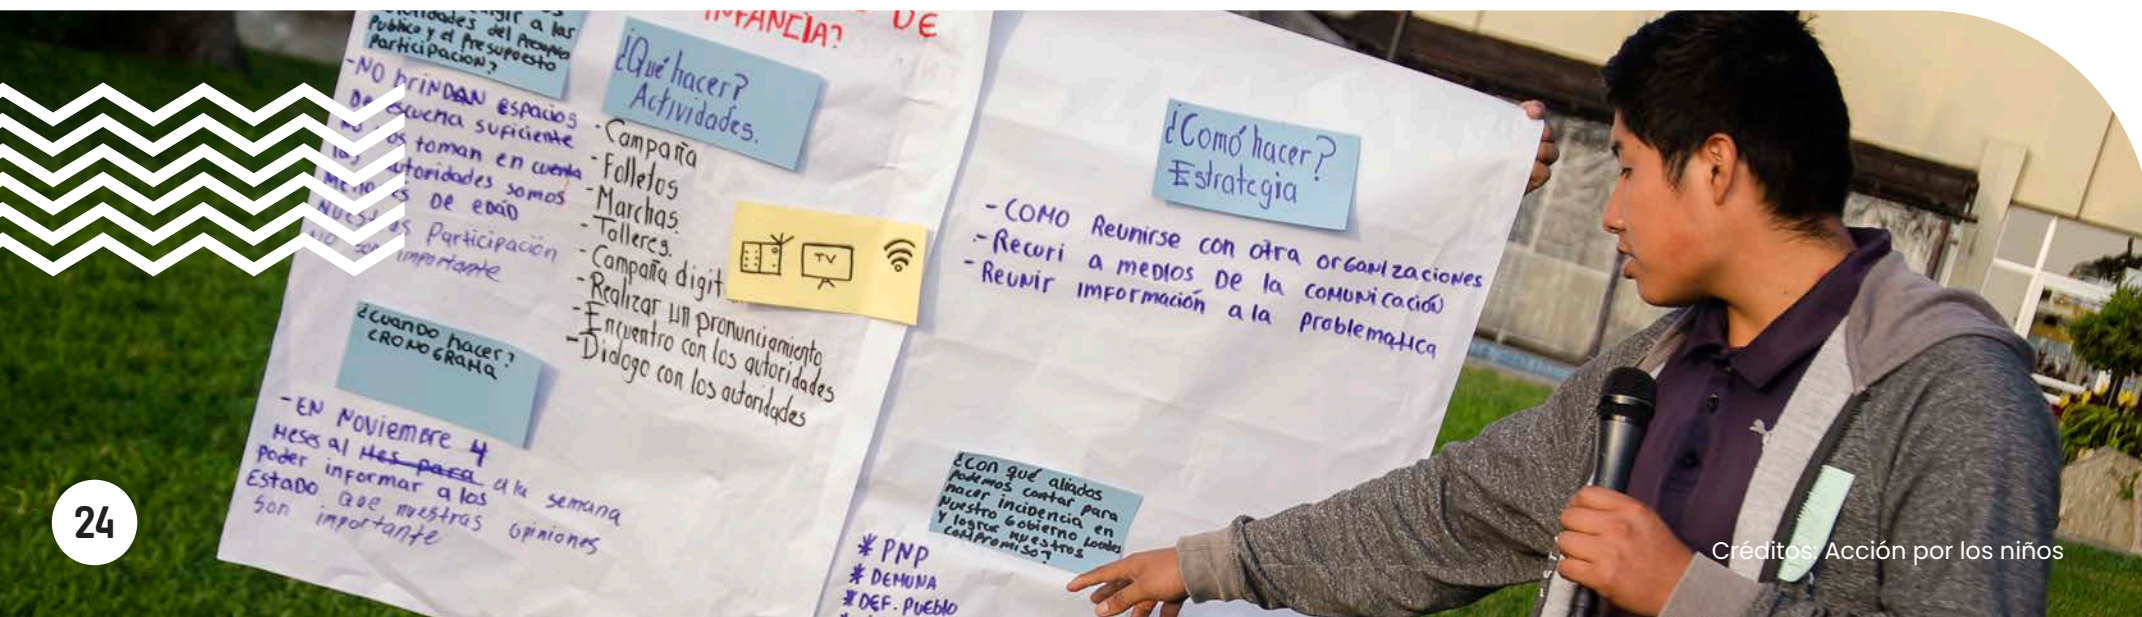 INFANCIA? DE
gir a las
del
Publico y el Presupuesto
Participación?
-NO brINDAN espacios
De escucha suficiente
toman en cuenta
autoridades somos
De edad
Participación
importante
¿Qué hacer?
Actividades.
- Campaña
- Folletos
- Marchas.
- Talleres.
- Campaña digit
- Realizar un pronunciamiento
- Encuentro con los autoridades
- Dialogo con los autoridades
TV
¿cuando hacer?
CRONOGRAMA
- EN Noviembre 4
Meses al Mes para a la semana
Poder informar a los
Estado que nuestras opiniones
son importante
¿Comó hacer?
Estrategia
- COMO Reunirse con otra organizaciones
- Recuri a medios De la comunicación
- Reunir imformación a la problematica
¿con qué aliados
Podemos contar para
hacer incidencia en
Nuestro Gobierno Locales
y lograr nuestros
compromiso?
* PNP
* DEMUNA
* DEF. PUEblo
24
Créditos: Acción por los niños